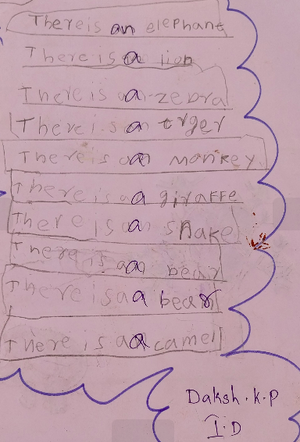 There is an elephant
There is a lion
There is a zebra
There is a tiger
There is a monkey.
There is a giraffe
There is a snake
There is a bear
There is a bear
There is a camel
Daksh.K.P
I.D